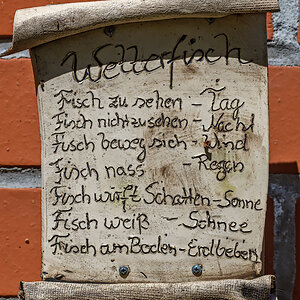 Wetterfisch
Fisch zu sehen - Tag
Fisch nicht zu sehen - Nacht
Fisch bewegt sich - Wind
Fisch nass - Regen
Fisch wirft Schatten - Sonne
Fisch weiß - Schnee
Fisch am Boden - Erdbeben